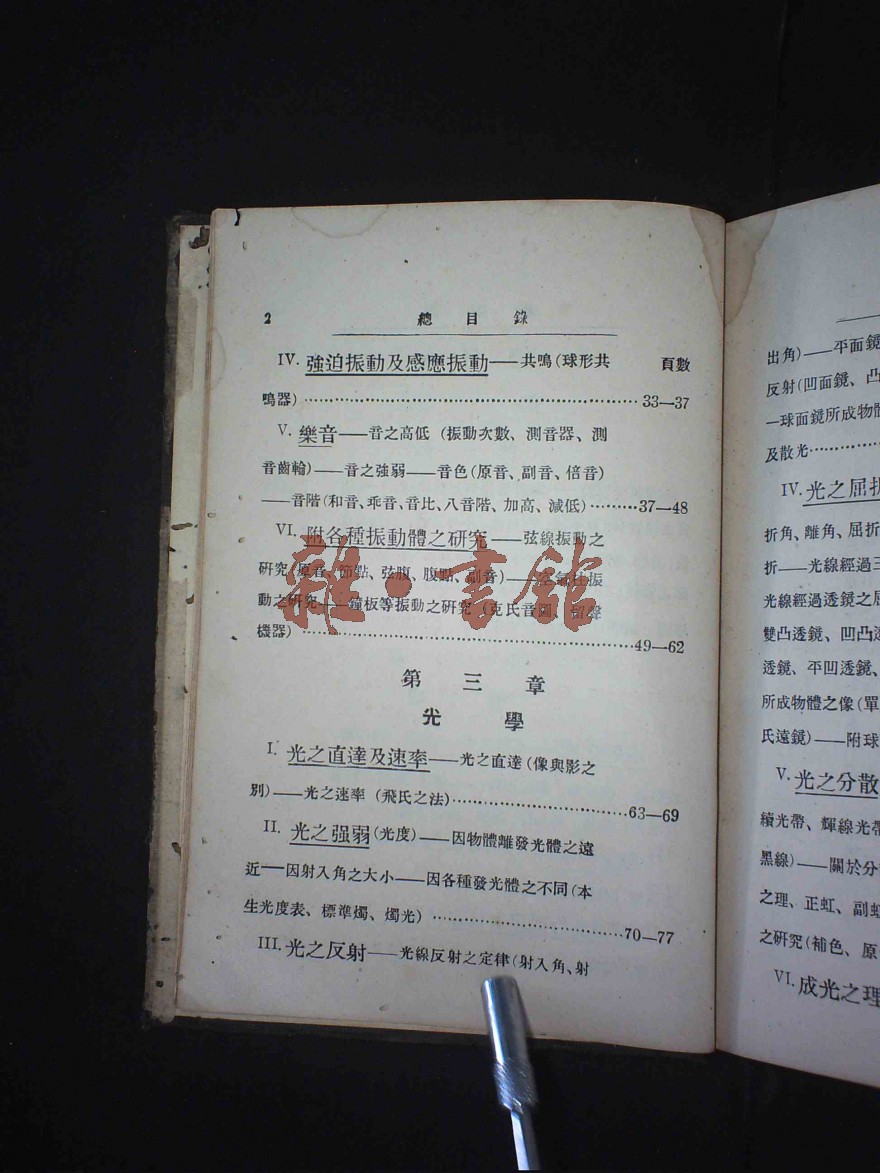 2 總目錄
IV. 強迫振動及感應振動——共鳴(球形共 頁數
鳴器)……………………………………………33—37
V. 樂音——音之高低 (振動次數、測音器、測
音齒輪)——音之強弱——音色(原音、副音、倍音)
——音階(和音、乖音、音比、八音階、加高、減低)………37—48
VI. 附各種振動體之研究——弦線振動之
研究(原音、節點、弦腹、腹點、副音)——空氣柱振
動之研究——鐘板等振動之研究 (克氏音圖、留聲
機器)……………………………………………49—62
雜·書館
第三章
光學
I. 光之直達及速率——光之直達(像與影之
別)——光之速率 (飛氏之法)……………………63—69
II. 光之强弱(光度)——因物體離發光體之遠
近——因射入角之大小——因各種發光體之不同(本
生光度表、標準燭、燭光)………………………70—77
III. 光之反射——光線反射之定律(射入角、射
出角)——平面鏡
反射(凹面鏡、凸
—球面鏡所成物體
及散光………
IV. 光之屈折
折角、離角、屈折
折——光線經過三
光線經過透鏡之屈
雙凸透鏡、凹凸透
透鏡、平凹透鏡、
所成物體之像(單
氏遠鏡)——附球
V. 光之分散
續光帶、輝線光帶
黑線)——關於分
之理、正虹、副虹
之研究(補色、原
VI. 成光之理